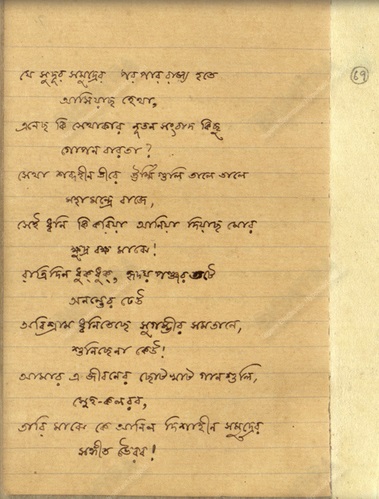 যে সুদূর সমুদ্রের পরপাররাজ্য হতে
আসিয়াছ হেথা,
এনেছ কি সেথাকার নূতন সংবাদ কিছু
গোপন বারতা?
সেথা শব্দহীন তীরে ঊর্মিগুলি তালে তালে
মহামন্দ্রে বাজে,
সেই ধ্বনি কি করিয়া আনিয়া দিয়াছ মোর
ক্ষুদ্র বক্ষ মাঝে!
রাত্রিদিন ধুক্‌ধুক্‌, হৃদয় পঞ্জর তটে
অনন্তের ঢেউ
অবিশ্রাম ধ্বনিতেছে সুগম্ভীর সমতানে,
শুনিছেনা কেউ!
আমার এ জীবনের ছোটখাট গানগুলি,
স্নেহ-কলরব,
তারি মাঝে কে আনিল দিশাহীন সমুদ্রের
সঙ্গীত ভৈরব!